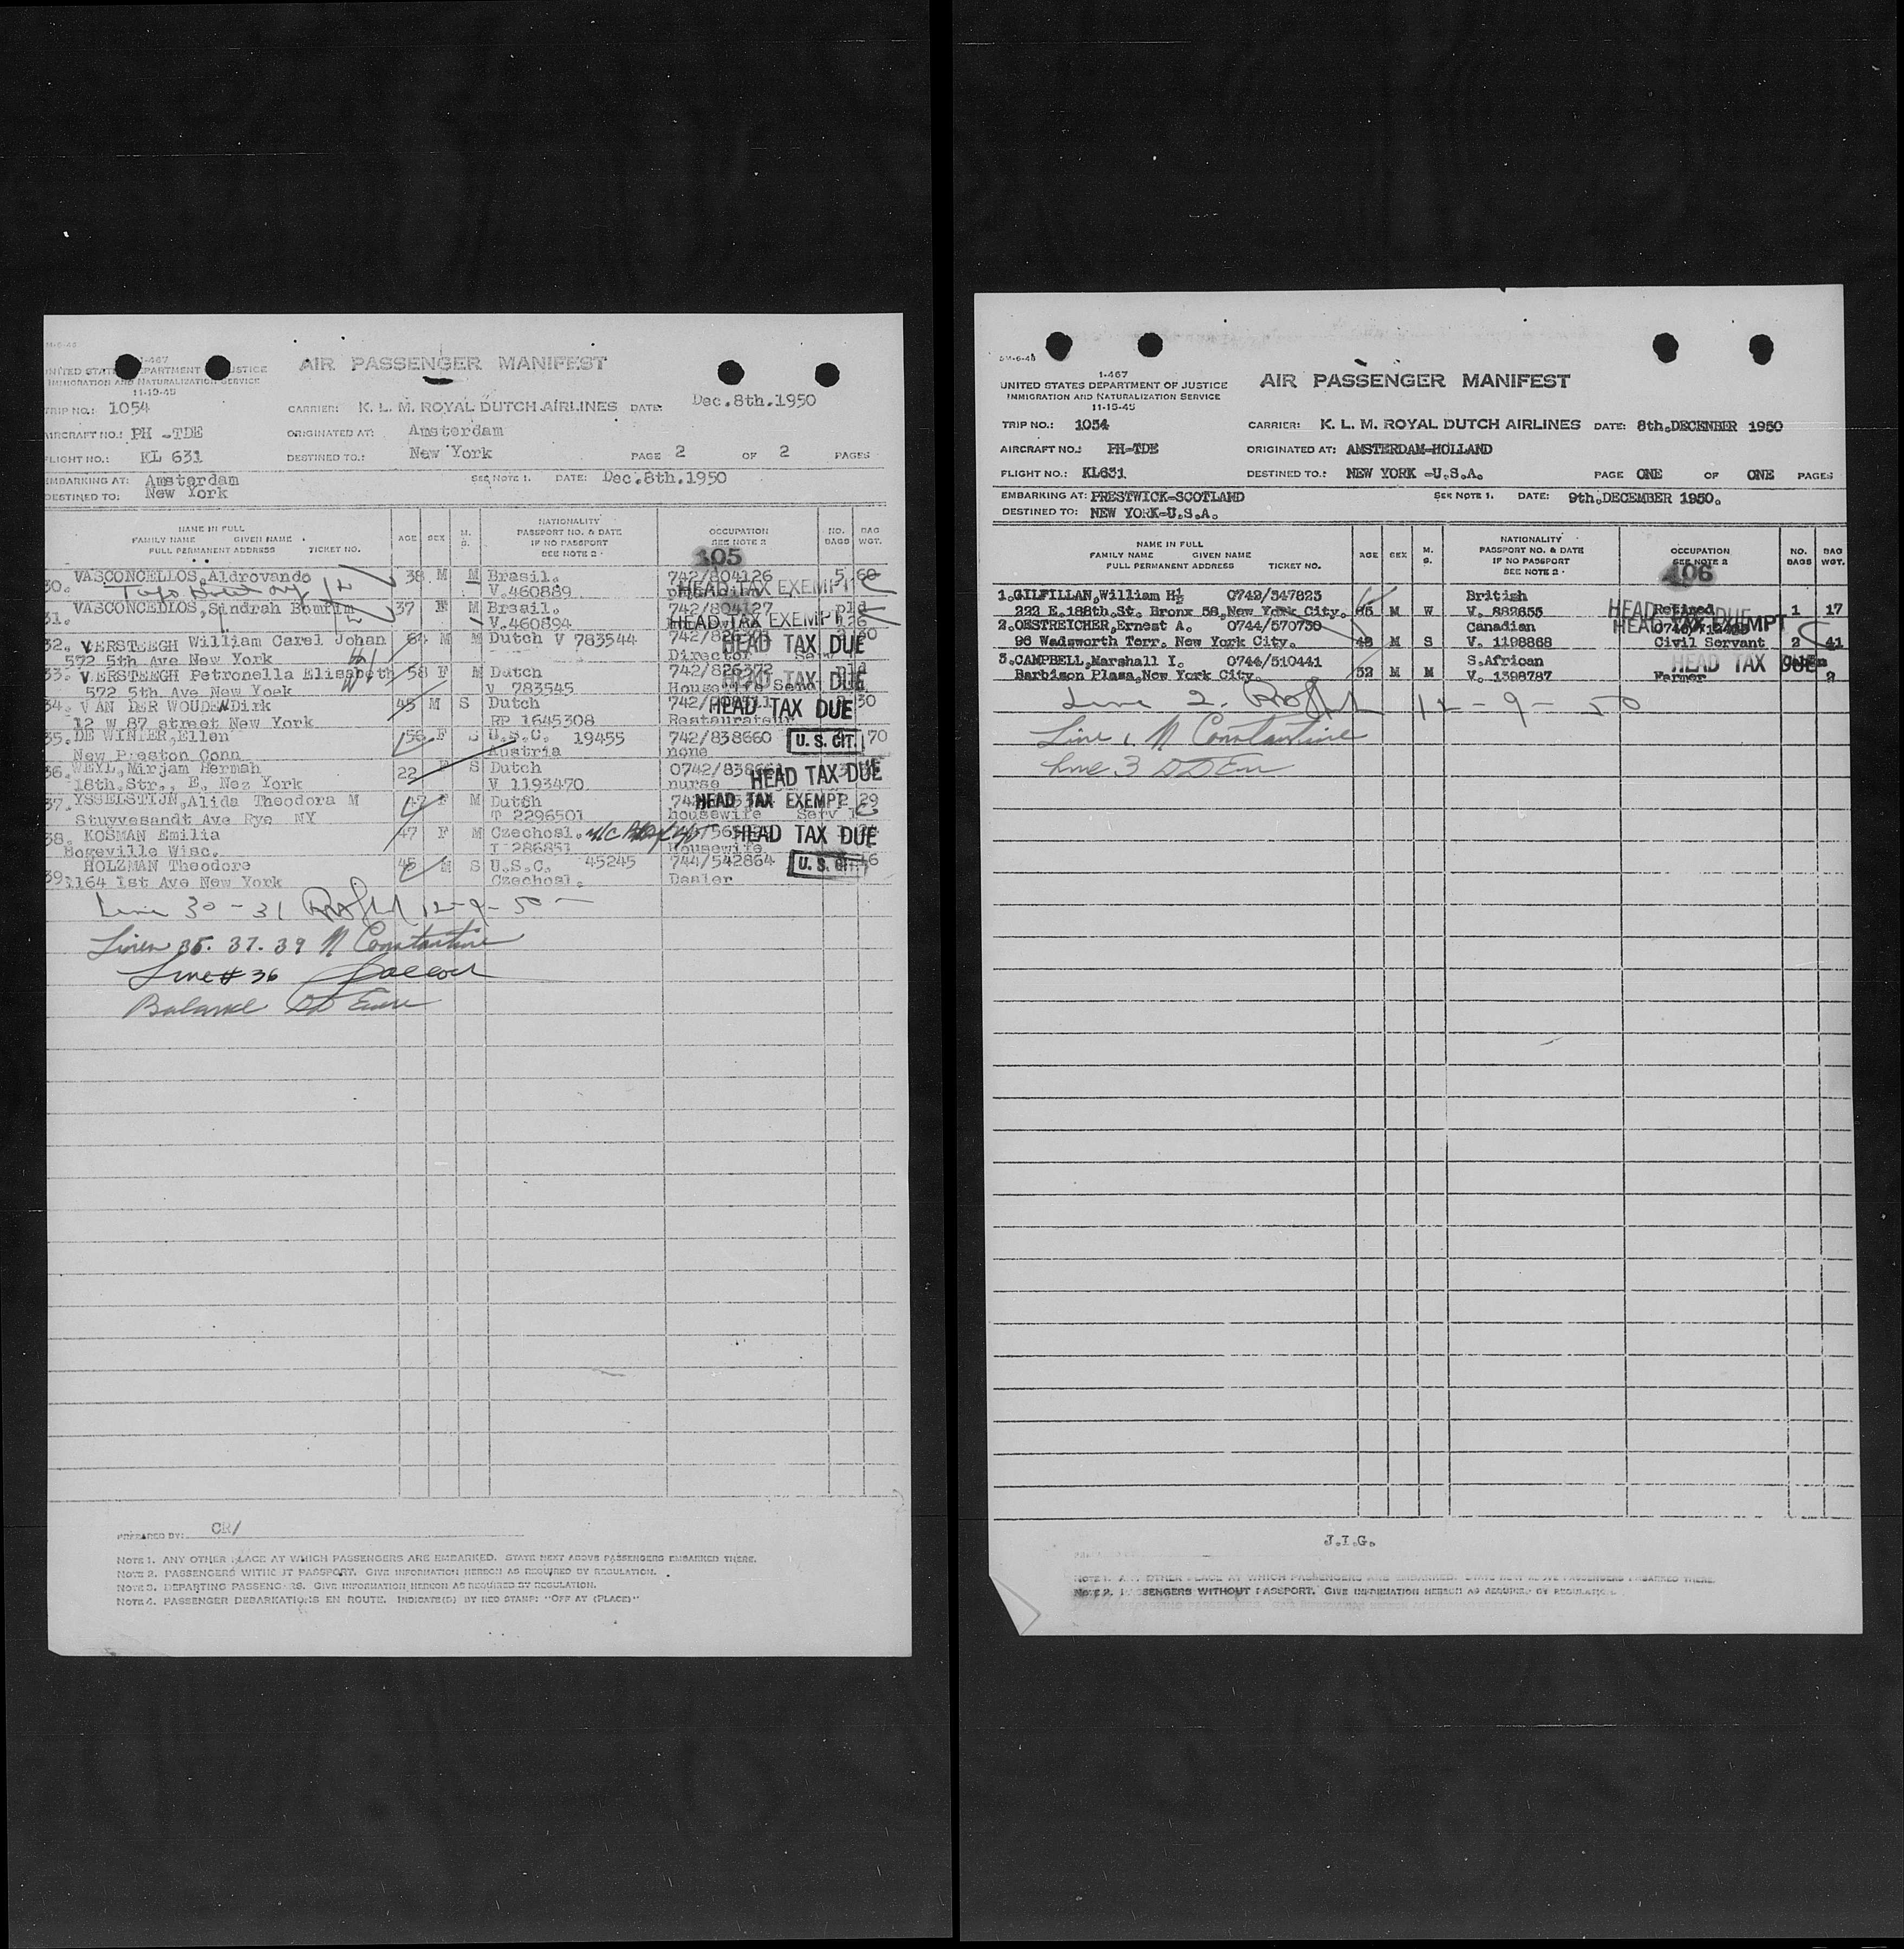 M-6-48
I-467
UNITED STATES DEPARTMENT OF JUSTICE
IMMIGRATION AND NATURALIZATION SERVICE
11-15-45
AIR PASSENGER MANIFEST
TRIP NO.: 1054
CARRIER: K. L. M. ROYAL DUTCH AIRLINES DATE: Dec.8th.1950
AIRCRAFT NO.: PH -TDE
ORIGINATED AT: Amsterdam
FLIGHT NO.: KL 631
DESTINED TO.: New York
PAGE 2 OF 2 PAGES
EMBARKING AT: Amsterdam
SEE NOTE 1. DATE: Dec.8th.1950
DESTINED TO: New York
NAME IN FULL
FAMILY NAME GIVEN NAME
FULL PERMANENT ADDRESS TICKET NO.
AGE SEX M. S.
NATIONALITY
PASSPORT NO. & DATE
IF NO PASSPORT
SEE NOTE 2
OCCUPATION
SEE NOTE 2
NO. BAGS
BAG WGT.
105
30. VASCONCELLOS,Aldrovando 38 M M Brasil. 742/804126 5 60
V.460889 HEAD TAX EXEMPT
31. VASCONCEDLOS,Sindrah Bomfim 37 F M Brsail. 742/804127 pld
V.460894 HEAD TAX EXEMPT
32. VERSTEEGH William Carel Johan 64 M M Dutch V 783544 HEAD TAX DUE 30
572 5th Ave New York Director
33. VERSTEEGH Petronella Elisabeth 58 F M Dutch 742/826372 pld
572 5th Ave New Yoek V 783545 Housewife HEAD TAX DUE
34. VAN DER WOUDEN Dirk 45 M S Dutch HEAD TAX DUE 30
12 W 87 street New York RP 1645308 Restaurateur
35. DE WINTER,Ellen 56 F S U.S.C. 19455 742/838660 U. S. CIT. 70
New Preston Conn Austria none
36. WEYL,Mirjam Hermah 22 F S Dutch HEAD TAX DUE
18th.Str., E, Nez York V 1193470 nurse
37. YSSELSTIJN,Alida Theodora M F M Dutch HEAD TAX EXEMPT 2 29
Stuyvesandt Ave Rye NY T 2296501 housewife Serv
38. KOSMAN Emilia 47 F M Czechosl. HEAD TAX DUE
Bogeville Wisc. I 286851 Housewife
39. HOLZMAN Theodore 45 M S U.S.C. 45245 744/542864 U. S. CIT. 16
1164 1st Ave New York Czechosl. Dealer
Line 30 - 31 12-9-50
Lines 35. 37. 39 N Constantine
Line # 36
Balance
PREPARED BY: CR/
NOTE 1. ANY OTHER PLACE AT WHICH PASSENGERS ARE EMBARKED. STATE NEXT ABOVE PASSENGERS EMBARKED THERE.
NOTE 2. PASSENGERS WITHOUT PASSPORT. GIVE INFORMATION HEREON AS REQUIRED BY REGULATION.
NOTE 3. DEPARTING PASSENGERS. GIVE INFORMATION HEREON AS REQUIRED BY REGULATION.
NOTE 4. PASSENGER DEBARKATIONS EN ROUTE. INDICATE(D) BY RED STAMP: "OFF AT (PLACE)"
I-467
UNITED STATES DEPARTMENT OF JUSTICE
IMMIGRATION AND NATURALIZATION SERVICE
11-15-45
AIR PASSENGER MANIFEST
TRIP NO.: 1054
CARRIER: K. L. M. ROYAL DUTCH AIRLINES DATE: 8th.DECEMBER 1950
AIRCRAFT NO.: PH-TDE
ORIGINATED AT: AMSTERDAM-HOLLAND
FLIGHT NO.: KL631
DESTINED TO.: NEW YORK -U.S.A.
PAGE ONE OF ONE PAGES
EMBARKING AT: PRESTWICK-SCOTLAND
SEE NOTE 1. DATE: 9th.DECEMBER 1950.
DESTINED TO: NEW YORK-U.S.A.
NAME IN FULL
FAMILY NAME GIVEN NAME
FULL PERMANENT ADDRESS TICKET NO.
AGE SEX M. S.
NATIONALITY
PASSPORT NO. & DATE
IF NO PASSPORT
SEE NOTE 2
OCCUPATION
SEE NOTE 2
NO. BAGS
BAG WGT.
106
1.GILFILLAN,William H. 0742/547823 British
222 E.188th.St. Bronx 58,New York City. 65 M W V. 882655 Retired 1 17
2.OESTREICHER,Ernest A. 0744/570730 Canadian HEAD TAX EXEMPT
96 Wadsworth Terr. New York City. 48 M S V. 1198868 Civil Servant 2 41
3.CAMPBELL,Marshall I. 0744/510441 S.African HEAD TAX DUE
Barbizon Plaza,New York City. 52 M M V. 1398787 Farmer 2
Line 2. 12-9-50
Line 1 N Constantine
Line 3
J.I.G.
NOTE 1. ANY OTHER PLACE AT WHICH PASSENGERS ARE EMBARKED. STATE NEXT ABOVE PASSENGERS EMBARKED THERE.
NOTE 2. PASSENGERS WITHOUT PASSPORT. GIVE INFORMATION HEREON AS REQUIRED BY REGULATION.